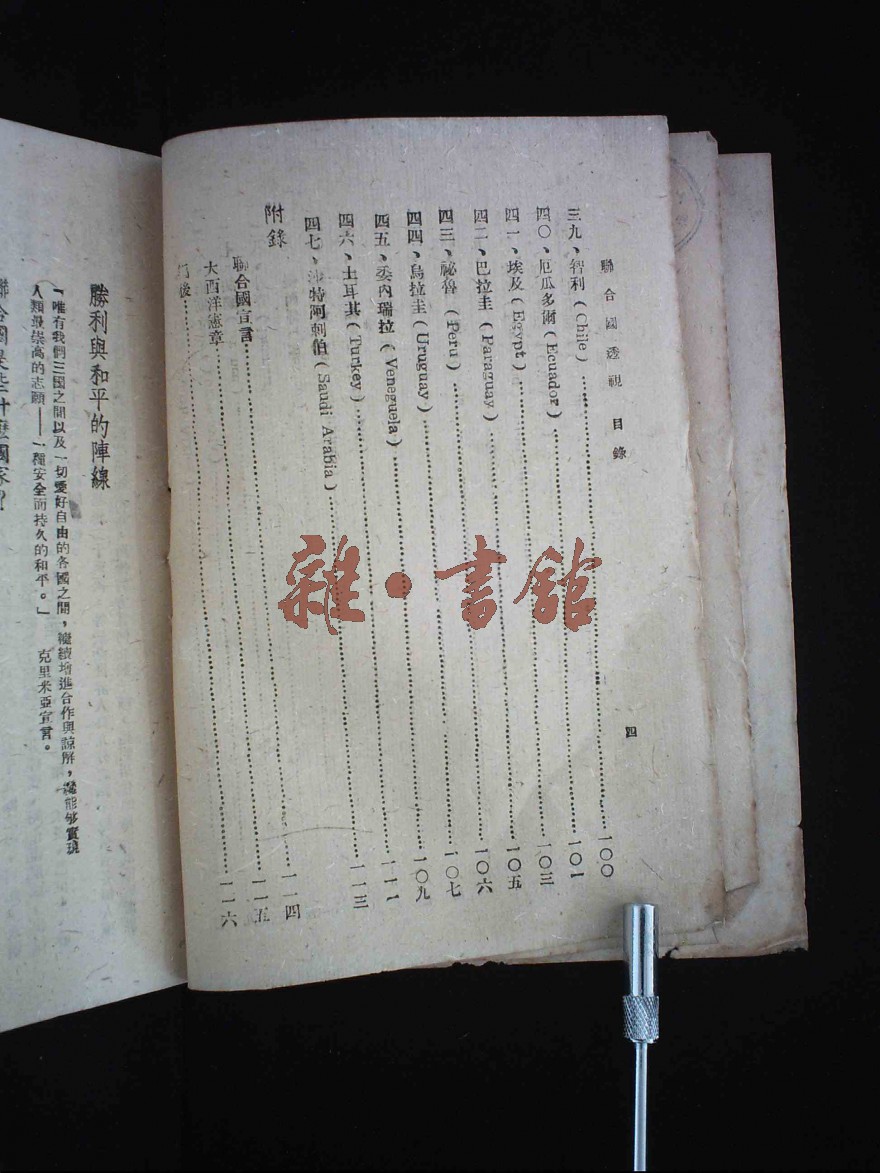 聯合國透視 目錄 四
三九、智利(Chile)……一〇〇
四〇、厄瓜多爾(Ecuador)……一〇一
四一、埃及(Egypt)……一〇三
四二、巴拉圭(Paraguay)……一〇五
四三、祕魯(Peru)……一〇六
四四、烏拉圭(Uruguay)……一〇七
四五、委內瑞拉(Veneguela)……一〇九
四六、土耳其(Turkey)……一一一
四七、沙特阿剌伯(Saudi Arabia)……一一三
附錄
聯合國宣言……一一四
大西洋憲章……一一五
後……一一六
勝利與和平的陣線
「唯有我們三國之間以及一切愛好自由的各國之間，繼續增進合作與諒解，纔能够實現
人類最崇高的志願——一種安全而持久的和平。」 克里米亞宣言。
聯合國是些什麼國家?
雜·書館